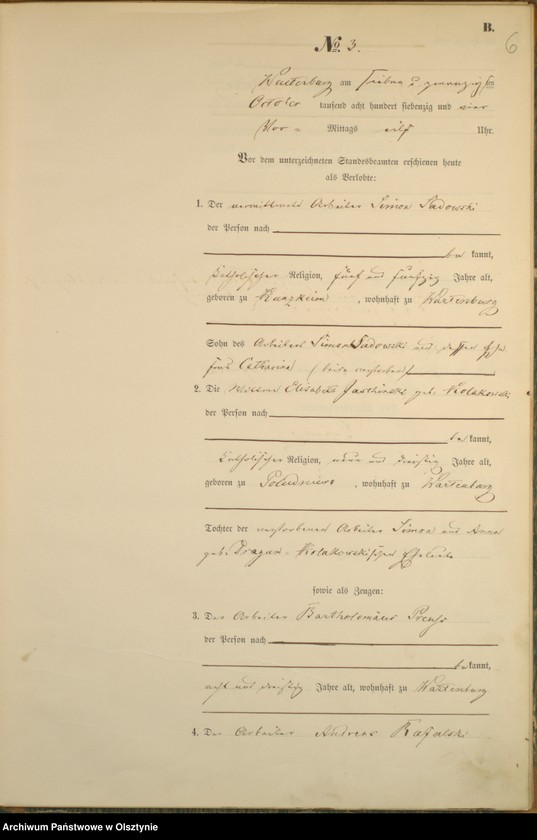 B.
6
No. 3.
Wartenburg am sieben u zwanzigsten
October tausend acht hundert siebenzig und vier
Vor = Mittags eilf Uhr.
Vor dem unterzeichneten Standesbeamten erschienen heute
als Verlobte:
1. Der verwittwete Arbeiter Simon Sadowski
der Person nach
be kannt,
katholischer Religion, fünf und fünfzig Jahre alt,
geboren zu , wohnhaft zu Wartenburg
Sohn des Arbeiters Simon Sadowski und dessen Ehe
frau Catharina (beide verstorben)
2. Die Wittwe Elisabeth geb. Kolakowski
der Person nach
be kannt,
katholischer Religion, neun und dreißig Jahre alt,
geboren zu , wohnhaft zu Wartenburg
Tochter der verstorbenen Arbeiter Simon und Anna
geb. Dragan - Kolakowskischen Eheleute
sowie als Zeugen:
3. Der Arbeiter Bartholomäus Preuß
der Person nach
be kannt,
acht und dreißig Jahre alt, wohnhaft zu Wartenburg
4. Der Arbeiter Andreas
Archiwum Państwowe w Olsztynie